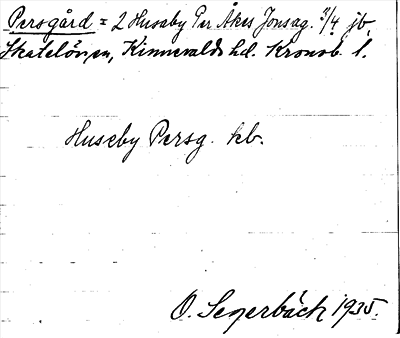 Persgård = 2 Huseby Per Åkes Jonsag. 3/4 jb,
Skatelöv sn, Kinnevalds hd. Kronob. l.
Huseby Persg. kb.
O. Segerbäck 1935.